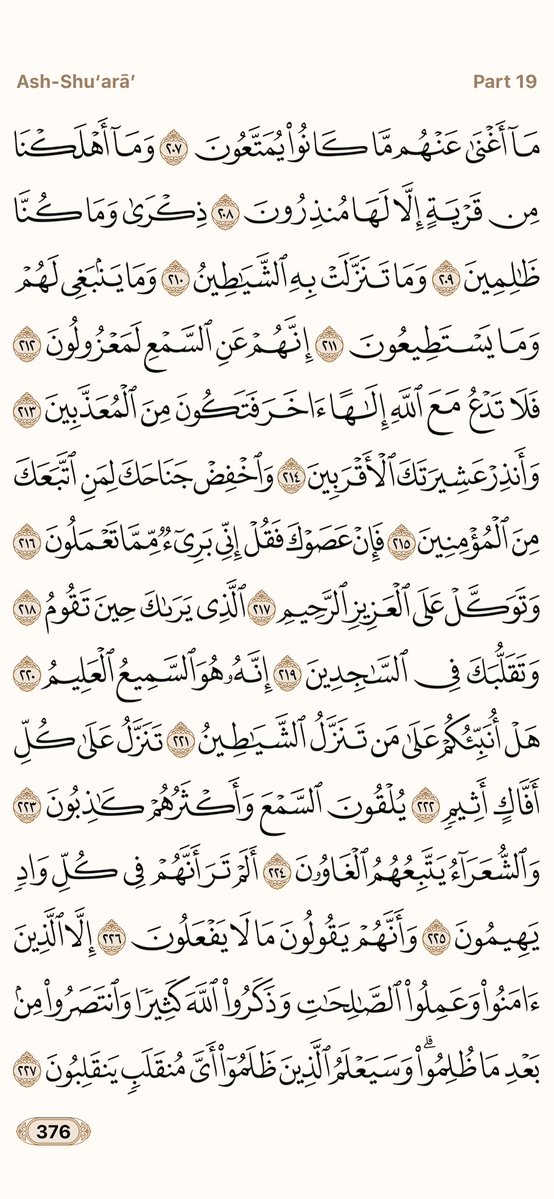 Ash-Shu‘arā’ Part 19
مَآ أَغْنَىٰ عَنْهُم مَّا كَانُوا۟ يُمَتَّعُونَ ٢٠٧ وَمَآ أَهْلَكْنَا
مِن قَرْيَةٍ إِلَّا لَهَا مُنذِرُونَ ٢٠٨ ذِكْرَىٰ وَمَا كُنَّا
ظَٰلِمِينَ ٢٠٩ وَمَا تَنَزَّلَتْ بِهِ ٱلشَّيَٰطِينُ ٢١٠ وَمَا يَنۢبَغِى لَهُمْ
وَمَا يَسْتَطِيعُونَ ٢١١ إِنَّهُمْ عَنِ ٱلسَّمْعِ لَمَعْزُولُونَ ٢١٢
فَلَا تَدْعُ مَعَ ٱللَّهِ إِلَٰهًا ءَاخَرَ فَتَكُونَ مِنَ ٱلْمُعَذَّبِينَ ٢١٣
وَأَنذِرْ عَشِيرَتَكَ ٱلْأَقْرَبِينَ ٢١٤ وَٱخْفِضْ جَنَاحَكَ لِمَنِ ٱتَّبَعَكَ
مِنَ ٱلْمُؤْمِنِينَ ٢١٥ فَإِنْ عَصَوْكَ فَقُلْ إِنِّى بَرِىٓءٌ مِّمَّا تَعْمَلُونَ ٢١٦
وَتَوَكَّلْ عَلَى ٱلْعَزِيزِ ٱلرَّحِيمِ ٢١٧ ٱلَّذِى يَرَىٰكَ حِينَ تَقُومُ ٢١٨
وَتَقَلُّبَكَ فِى ٱلسَّٰجِدِينَ ٢١٩ إِنَّهُۥ هُوَ ٱلسَّمِيعُ ٱلْعَلِيمُ ٢٢٠
هَلْ أُنَبِّئُكُمْ عَلَىٰ مَن تَنَزَّلُ ٱلشَّيَٰطِينُ ٢٢١ تَنَزَّلُ عَلَىٰ كُلِّ
أَفَّاكٍ أَثِيمٍ ٢٢٢ يُلْقُونَ ٱلسَّمْعَ وَأَكْثَرُهُمْ كَٰذِبُونَ ٢٢٣
وَٱلشُّعَرَآءُ يَتَّبِعُهُمُ ٱلْغَاوُۥنَ ٢٢٤ أَلَمْ تَرَ أَنَّهُمْ فِى كُلِّ وَادٍ
يَهِيمُونَ ٢٢٥ وَأَنَّهُمْ يَقُولُونَ مَا لَا يَفْعَلُونَ ٢٢٦ إِلَّا ٱلَّذِينَ
ءَامَنُوا۟ وَعَمِلُوا۟ ٱلصَّٰلِحَٰتِ وَذَكَرُوا۟ ٱللَّهَ كَثِيرًا وَٱنتَصَرُوا۟ مِنۢ
بَعْدِ مَا ظُلِمُوا۟ ۗ وَسَيَعْلَمُ ٱلَّذِينَ ظَلَمُوٓا۟ أَىَّ مُنقَلَبٍ يَنقَلِبُونَ ٢٢٧
376